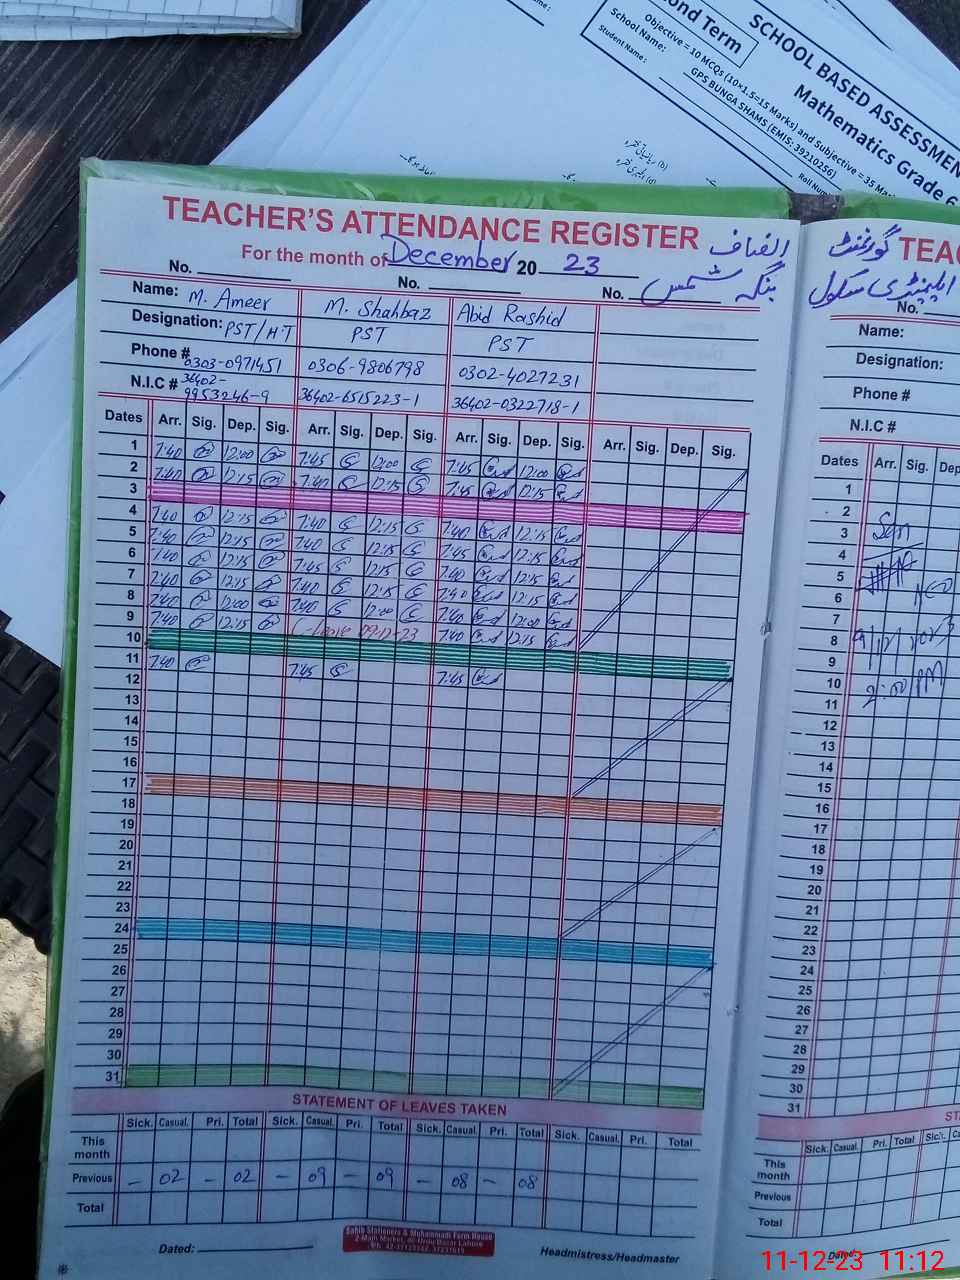 SCHOOL BASED ASSESSMEN
ond Term
Mathematics Grade 6
Objective = 10 MCQs (10×1.5=15 Marks) and Subjective = 35 Ma
School Name:
GPS BUNGA SHAMS (EMIS: 39210256)
Student Name:
Roll Num
TEACHER'S ATTENDANCE REGISTER
For the month of December 20 23
الضاف
بنگہ شمس
No. No. No.
Name: M. Ameer M. Shahbaz Abid Rashid
Designation: PST/H.T PST PST
Phone # 0303-0971451 0306-9806798 0302-4027231
N.I.C # 36402-9953246-9 36402-6515223-1 36402-0322718-1
Dates Arr. Sig. Dep. Sig. Arr. Sig. Dep. Sig. Arr. Sig. Dep. Sig. Arr. Sig. Dep. Sig.
1 7:40 12:00 7:45 12:00 7:45 12:00
2 7:40 12:15 7:40 12:15 7:45 12:15
3
4 7:40 12:15 7:40 12:15 7:40 12:15
5 7:40 12:15 7:40 12:15 7:45 12:15
6 7:40 12:15 7:45 12:15 7:40 12:15
7 7:40 12:15 7:40 12:15 7:40 12:15
8 7:40 12:00 7:40 12:00 7:40 12:00
9 7:40 12:15 C-leave 09-12-23 7:40 12:15
10
11 7:40 7:45 7:45
12
13
14
15
16
17
18
19
20
21
22
23
24
25
26
27
28
29
30
31
STATEMENT OF LEAVES TAKEN
Sick. Casual. Pri. Total Sick. Casual. Pri. Total Sick. Casual. Pri. Total Sick. Casual. Pri. Total
This month
Previous – 02 – 02 – 09 – 09 – 08 – 08
Total
Sahib Stationers & Muhammadi Farm House
2-Main Market, 40 Urdu Bazar Lahore
Dated:
Headmistress/Headmaster
گورنمنٹ
TEAC
سکول
No.
Name:
Designation:
Phone #
N.I.C #
Dates Arr. Sig. Dep
1
2
3
4
5
6
7
8 9/12/2023
9
10 2:00 PM
11
12
13
14
15
16
17
18
19
20
21
22
23
24
25
26
27
28
29
30
31
STA
Sick. Casual. Pri. Total Sick. Casual.
This month
Previous
Total
Dated:
11-12-23 11:12